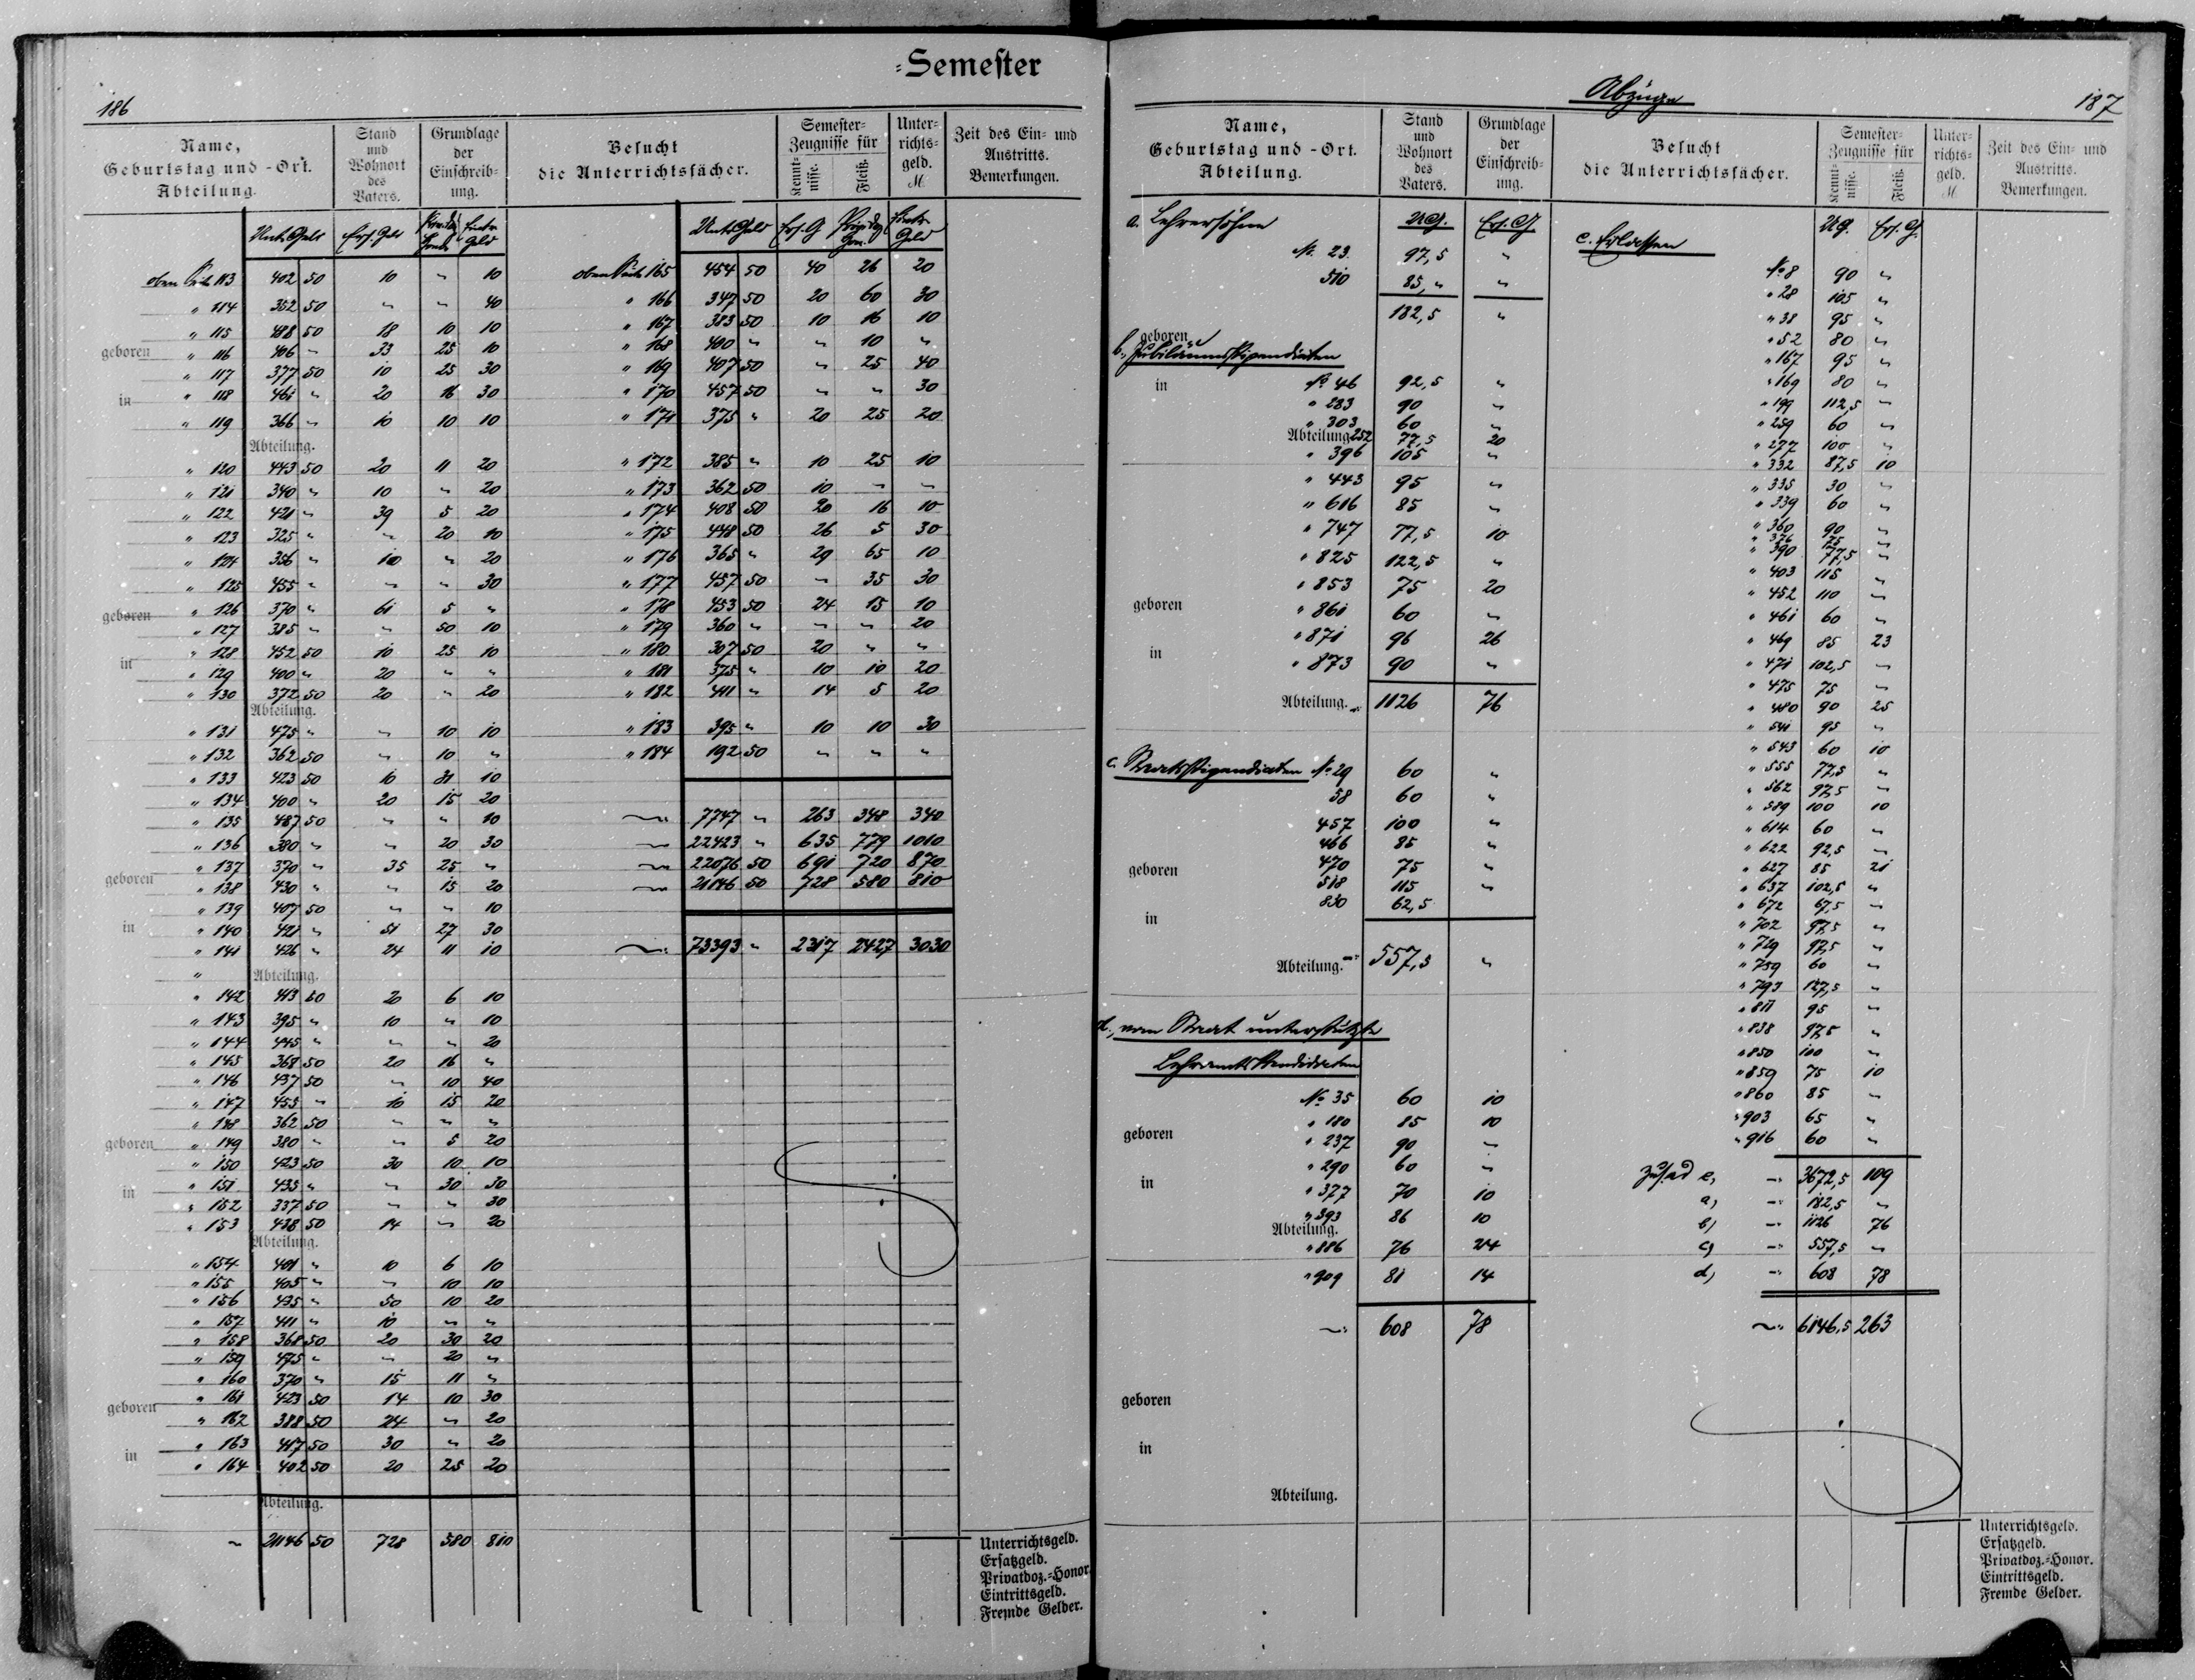 =Semester
186
Name,
Geburtstag und -Ort.
Abteilung.
Stand
und
Wohnort
des
Vaters.
Grundlage
der
Einschreib-
ung.
Besucht
die Unterrichtsfächer.
Semester-
Zeugnisse für
Kennt-
nisse.
Fleiß.
Unter-
richts-
geld.
M
Zeit des Ein- und
Austritts.
Bemerkungen.
Unt. Geld Ers. Geld
113 402 50 10 " 10
" 114 352 50 " " 40
" 115 488 50 18 10 10
geboren " 116 406 " 33 25 10
" 117 377 50 10 25 30
in " 118 461 " 20 16 30
" 119 366 " 10 10 10
Abteilung.
" 120 443 50 20 11 20
" 121 340 " 10 " 20
" 122 421 " 39 5 20
" 123 325 " " 20 10
" 124 356 " 10 " 20
" 125 455 " " " 30
geboren " 126 370 " 61 5 "
" 127 385 " " 50 10
in " 128 452 50 10 25 10
" 129 400 " 20 " "
" 130 372 50 20 " 20
Abteilung.
" 131 475 " " 10 10
" 132 362 50 " 10 "
" 133 423 50 10 31 10
" 134 400 " 20 15 20
" 135 487 50 " " 10
" 136 380 " " 20 30
geboren " 137 370 " 35 25 "
" 138 430 " " 15 20
" 139 407 50 " " 10
in " 140 421 " 51 27 30
" 141 426 " 24 11 10
" Abteilung.
" 142 413 50 20 6 10
" 143 395 " 10 " 10
" 144 445 " " " 20
" 145 368 50 20 16 "
" 146 437 50 " 10 40
" 147 455 " 10 15 20
" 148 362 50 " " "
geboren " 149 380 " " 5 20
" 150 423 50 30 10 10
in " 151 435 " " 30 50
" 152 337 50 " " 30
" 153 438 50 14 " 20
Abteilung.
" 154 401 " 10 6 10
" 155 405 " " 10 10
" 156 435 " 50 10 20
" 157 411 " 10 " "
" 158 368 50 20 30 20
" 159 475 " " 20 "
" 160 370 " 15 11 "
geboren " 161 423 50 14 10 30
" 162 388 50 24 " 20
in " 163 417 50 30 " 20
" 164 402 50 20 25 20
Abteilung.
21146 50 728 580 810
Unt. Geld Ers. G
165 454 50 40 26 20
" 166 347 50 20 60 30
" 167 383 50 10 16 10
" 168 400 " " 10 "
" 169 407 50 " 25 40
" 170 457 50 " " 30
" 171 375 " 20 25 20
" 172 385 " 10 25 10
" 173 362 50 10 " "
" 174 408 50 20 16 10
" 175 448 50 26 5 30
" 176 365 " 29 65 10
" 177 457 50 " 35 30
" 178 453 50 24 15 10
" 179 360 " " " 20
" 180 307 50 20 " "
" 181 375 " 10 10 20
" 182 411 " 14 5 20
" 183 395 " 10 10 30
" 184 192 50 " " "
7747 " 263 348 340
22423 " 635 779 1010
22076 50 691 720 870
21146 50 728 580 810
73393 " 2317 2427 3030
Unterrichtsgeld.
Ersatzgeld.
Privatdoz.=Honor.
Eintrittsgeld.
Fremde Gelder.
Abzüge
187
Name,
Geburtstag und -Ort.
Abteilung.
Stand
und
Wohnort
des
Vaters.
Grundlage
der
Einschreib-
ung.
Besucht
die Unterrichtsfächer.
Semester-
Zeugnisse für
Kennt-
nisse.
Fleiß.
Unter-
richts-
geld.
M
Zeit des Ein- und
Austritts.
Bemerkungen.
a. Lehrersöhne U.G. Ers. G.
No. 23 97,5 "
510 85, " "
182,5 "
geboren
b., Jubiläumsstipendiaten
in No 46 92,5 "
" 283 90 "
" 303 60 "
Abteilung. 252 77,5 20
" 396 105 "
" 443 95 "
" 616 85 "
" 747 77,5 10
" 825 122,5 "
" 853 75 20
geboren " 861 60 "
" 871 96 26
in " 873 90 "
Abteilung. 1126 76
c. Staatsstipendiaten No. 29 60 "
58 60 "
457 100 "
466 85 "
geboren 470 75 "
518 115 "
830 62,5
in
Abteilung. 557,5 "
d., vom Staat unterstützte
Lehramtskandidaten
No. 35 60 10
" 180 85 10
geboren " 237 90 "
" 290 60 "
in " 377 70 10
" 393 86 10
Abteilung.
" 886 76 24
" 909 81 14
608 78
geboren
in
Abteilung.
U.G. Ers. G.
No 8 90 "
" 28 105 "
" 38 95 "
" 52 80 "
" 167 95 "
" 169 80 "
" 199 112,5 "
" 259 60 "
" 277 100 "
" 332 87,5 10
" 335 30 "
" 339 60 "
" 360 90 "
" 376 75 "
" 390 77,5 "
" 403 115 "
" 452 110 "
" 461 60 "
" 469 85 23
" 471 102,5 "
" 475 75 "
" 480 90 25
" 541 95 "
" 543 60 10
" 555 77,5 "
" 562 97,5 "
" 589 100 10
" 614 60 "
" 622 92,5 "
" 627 85 21
" 637 102,5 "
" 672 67,5 "
" 702 97,5 "
" 729 97,5 "
" 759 60 "
" 793 127,5 "
" 811 95 "
" 838 97,5 "
" 850 100 "
" 859 75 10
" 860 85 "
" 903 65 "
" 916 60 "
e, 3672,5 109
a) 182,5 "
b) 1126 76
c) 557,5 "
d) 608 78
6146,5 263
Unterrichtsgeld.
Ersatzgeld.
Privatdoz.=Honor.
Eintrittsgeld.
Fremde Gelder.